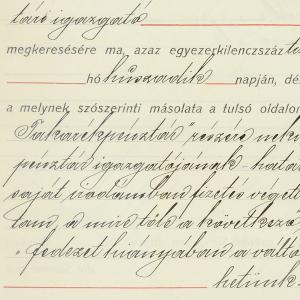 tári igazgató
megkeresésére ma, azaz egyezerkilencszáz
hó huszadik napján, dé
a melynek szószerinti másolata a tulsó oldalo
Takarékpénztár" részére nek
pénztár igazgatójának – hatá
saját irodámban fizetés végett
tam, a mire tőle a következő
„fedezet hiányában a válto
hetünk